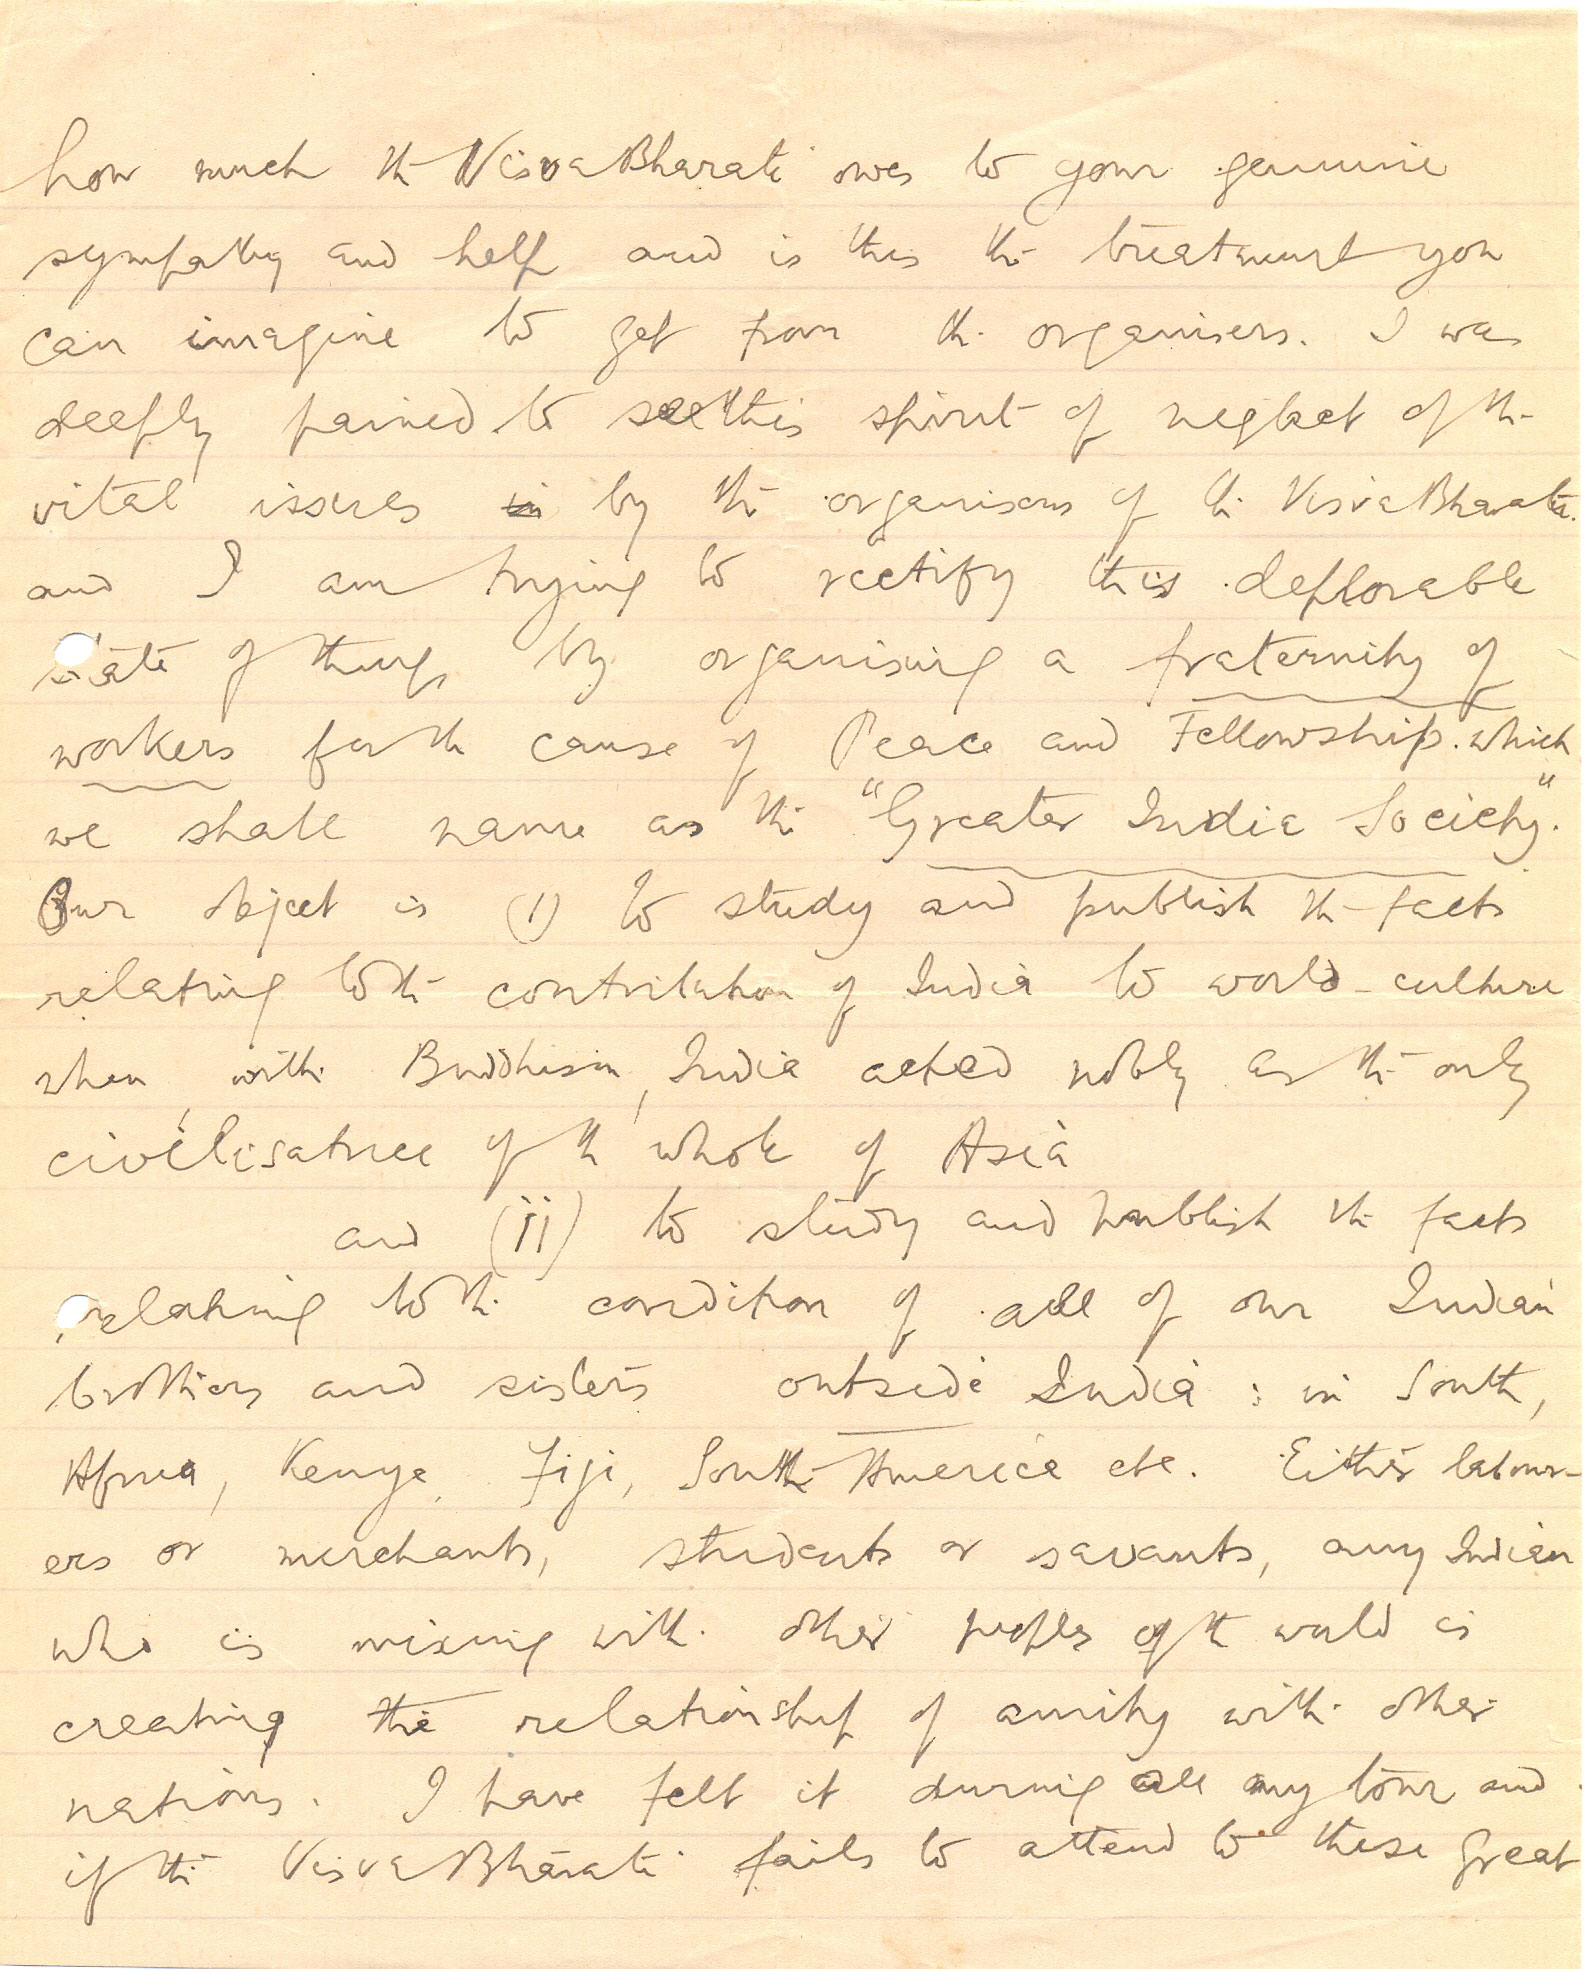 how much the Visva Bharati owes to your genuine
sympathy and help and is this the treatment you
can imagine to get from the organisers. I was
deeply pained to see this spirit of neglect of the
vital issues in by the organisers of the Visva Bharati.
and I am trying to rectify this deplorable
state of things by organising a fraternity of
workers for the cause of Peace and Fellowship. which
we shall name as the "Greater India Society".
Our object is (i) to study and publish the facts
relating to the contribution of India to world-culture
when, with Buddhism, India acted nobly as the only
civilisatrice of the whole of Asia
and (ii) to study and publish the facts
relating to the condition of all of our Indian
brothers and sisters outside India : in South,
Africa, Kenya, Fiji, South America etc. Either labour-
ers or merchants, students or savants, any Indian
who is mixing with other peoples of the world is
creating the relationship of amity with other
nations. I have felt it during all my tour and
if the Visva Bharati fails to attend to these great